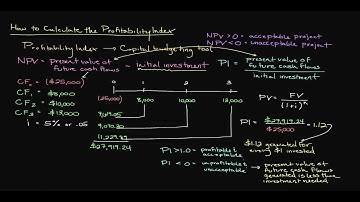 How to Calculate the Profitability Index
Profitability Index → Capital budgeting tool
NPV > 0 - acceptable project
NPV < 0 - unacceptable project
NPV = present value of future cash flows - initial investment
PI = present value of future cash flows
initial investment
CF₀ = ($25,000)
CF₁ = $8,000
CF₂ = $10,000
CF₃ =
i = 5% or .05
0 1 2 3
(25,000) 8,000 10,000 13,000
9,070.30
11,229.89
$27,919.24
PV = FV
(1+i)ⁿ
$27,919.24
$25,000
= 1.12
$1.12 generated for every $1 invested
PI > 1.0 = profitable & acceptable
PI < 0 = unprofitable & unacceptable
→ present value of future cash flows generated is less than investment needed